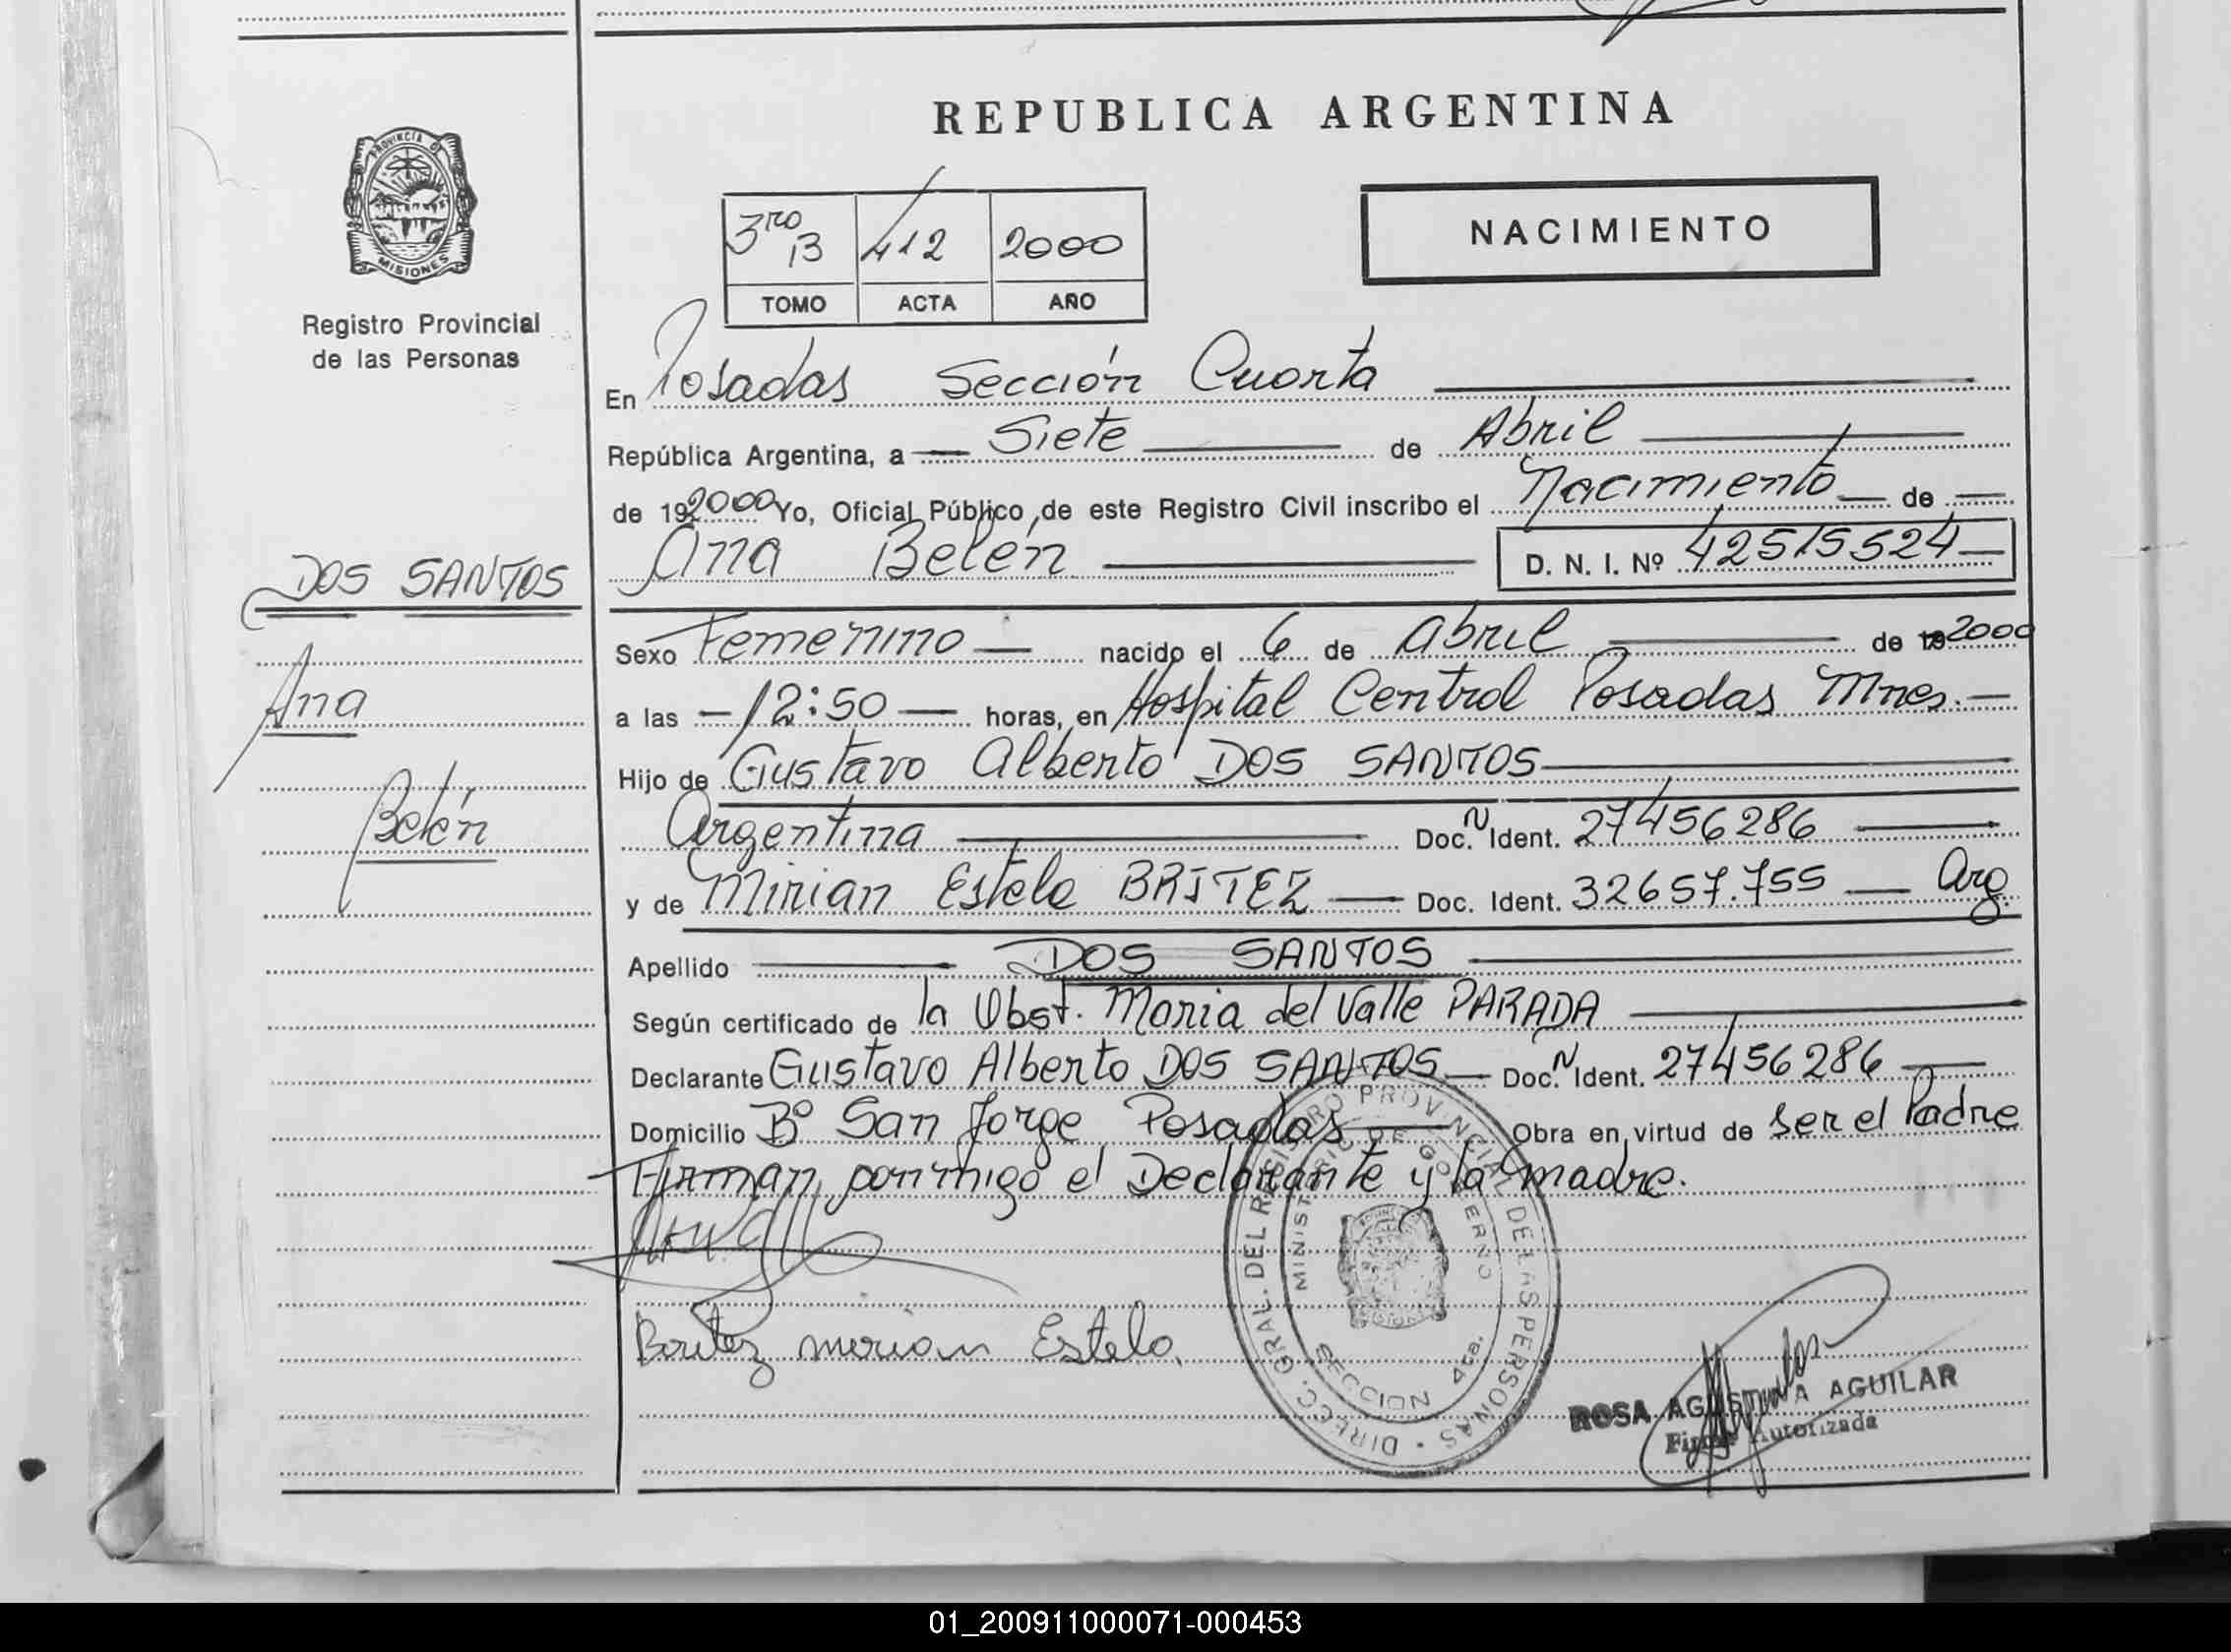 REPUBLICA ARGENTINA
PROVINCIA DE
MISIONES
Registro Provincial
de las Personas
3ro B 412 2000
TOMO ACTA AÑO
NACIMIENTO
En Posadas Sección Cuarta
República Argentina, a Siete de Abril
de 192000 Yo, Oficial Público de este Registro Civil inscribo el Nacimiento de
Ana Belén D. N. I. Nº 42515524
DOS SANTOS
Ana
Belén
Sexo Femenino nacido el 6 de Abril de 192000
a las 12:50 horas, en Hospital Central Posadas Mnes.
Hijo de Gustavo Alberto DOS SANTOS
Argentina Doc. N Ident. 27456286
y de Mirian Estela BRITEZ Doc. Ident. 32657.755 Arg.
Apellido DOS SANTOS
Según certificado de la Obst. Maria del Valle PARADA
Declarante Gustavo Alberto DOS SANTOS Doc. N Ident. 27456286
Domicilio Bº San Jorge Posadas Obra en virtud de ser el Padre
Firman por migo el Declarante y la madre.
Britez merian Estela.
DIRECC. GRAL. DEL REGISTRO PROVINCIAL DE LAS PERSONAS
MINISTERIO DE GOBIERNO
SECCION 4ta.
ROSA AGUSTINA AGUILAR
Firma Autorizada
01_200911000071-000453